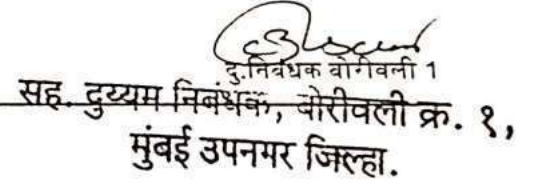 दु.निबंधक बोरीवली 1
सह. दुय्यम निबंधक, बोरीवली क्र. १,
मुंबई उपनगर जिल्हा.